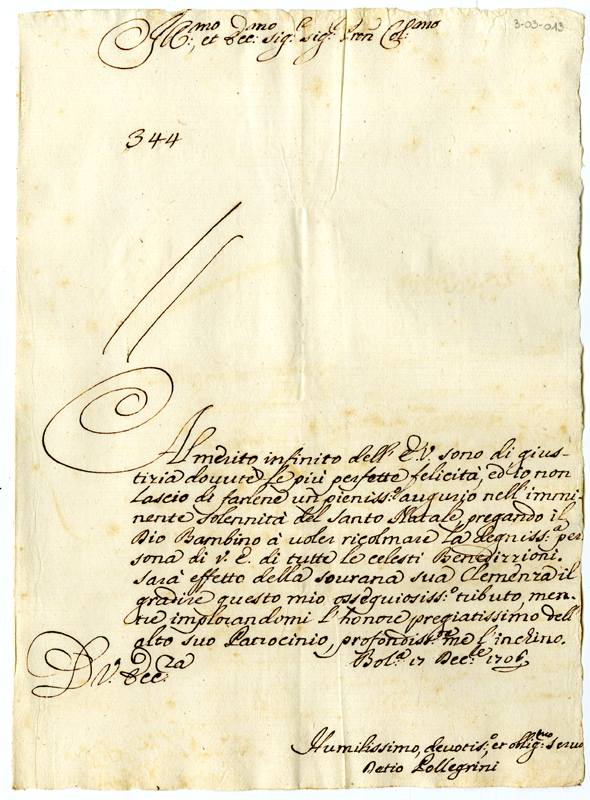 Ill:mo, et Ecc:mo Sig:e Sig:e Pron Col:mo
3-03-013
344
Al merito infinito dell' E. V. sono di gius-
tizia dovute le più perfette felicità, ed io non
lascio di farlene un pieniss:o augurio nell'immi-
nente solennità del Santo Natale pregando il
Dio Bambino à voler ricolmare la degniss:a per
sona di V. E. di tutte le celesti Benedizzioni.
Sarà effetto della sourana sua Clemenza il
gradire questo mio ossequiosiss:o tributo, men-
tre implorandomi l'honore pregiatissimo dell'
alto suo Patrocinio, profondiss:te me l'inchino.
D V. Ecc:za
Bol:a 17 Dec:re 1706
Humilissimo, devotis:o, et oblig:mo seruo
Detio Pellegrini